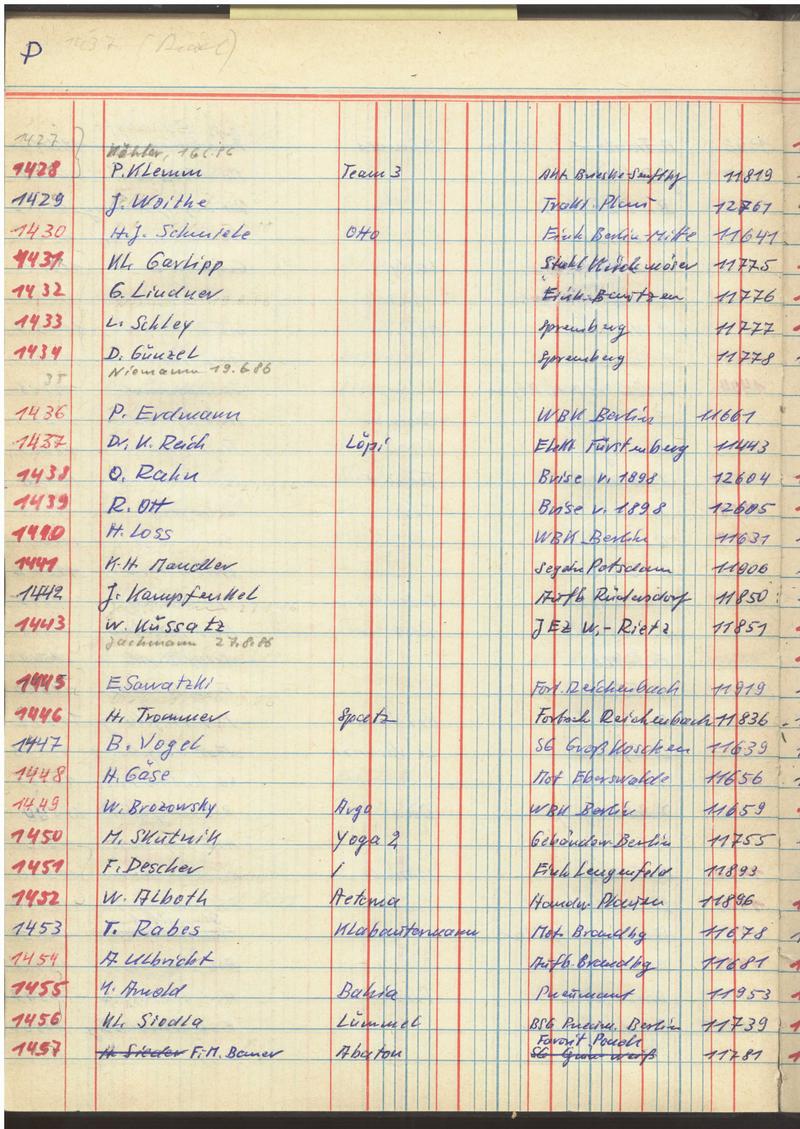 P 1437
1427
Köhler, 16.6.86
1428 P. Klemm Team 3 Akt. Brieske-Senftbg 11819
1429 J. Woithe Trakt. Plaui 12761
1430 H.J. Schmiele Otto Einh. Berlin-Mitte 11641
1431 Kl. Garlipp Stahl Kirchmöser 11775
1432 G. Lindner Einh. Bautzen 11776
1433 L. Schley Spremberg 11777
1434 D. Günzel Spremberg 11778
35 Niemann 19.6.86
1436 P. Erdmann WBK Berlin 11661
1437 Dr. K. Reich Löpi Elekt. Fürstenberg 11443
1438 O. Rahn Brise v. 1898 12604
1439 R. Ott Brise v. 1898 12605
1440 H. Loss WBK Berlin 11631
1441 K.H. Mandler Segeln Potsdam 11906
1442 J. Kampfenkel Aufb. Rüdersdorf 11850
1443 W. Kussatz JEZ W.-Rietz 11851
Jachmann 27.8.86
1445 E Sawatzki Fort. Reichenbach 11919
1446 H. Trommer Spatz Fortsch. Reichenbach 11836
1447 B. Vogel SG Groß Koschen 11639
1448 H. Gäse Mot Eberswalde 11656
1449 W. Brozowsky Argo WBK Berlin 11659
1450 M. Skutnik Yoga 2 Gebäudew. Berlin 11755
1451 F. Descher / Einh Lengenfeld 11893
1452 W. Alboth Aetoma Handw. Plauen 11896
1453 T. Rabes Klabautermann Mot. Brandbg 11678
1454 A. Ulbricht Aufb. Brandbg 11681
1455 Arnold Bahia Pneumant 11953
1456 Kl. Siodla Lümmel BSG Pneum. Berlin 11739
Favorit Pouch
1457 H. Sieder F.-M. Bauer Abaton SG Grün-weiß 11781